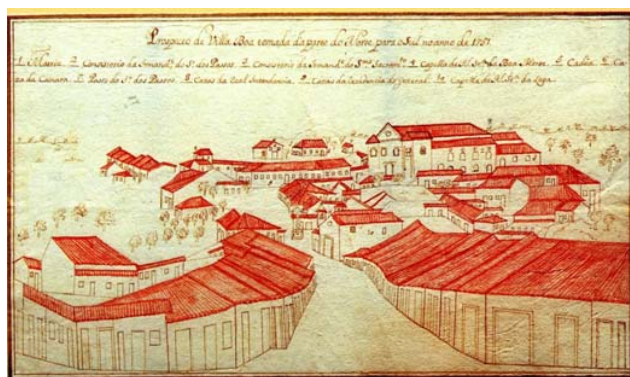 Prospecto de Villa Boa tomada da parte do Norte para o Sul no anno de 1751
Matriz. Consistorio da Irmand.e do S.r dos Passos. Consistorio da Irmand.e do S.mo Sacram.to Capella de N. Sr.a da Boa Morte. Cadêa. Ca
za da Camara. Passo do S.r dos Passos. Cazas da Real Intendencia. Cazas da do General. Capella de N. Sr.a da Lapa.